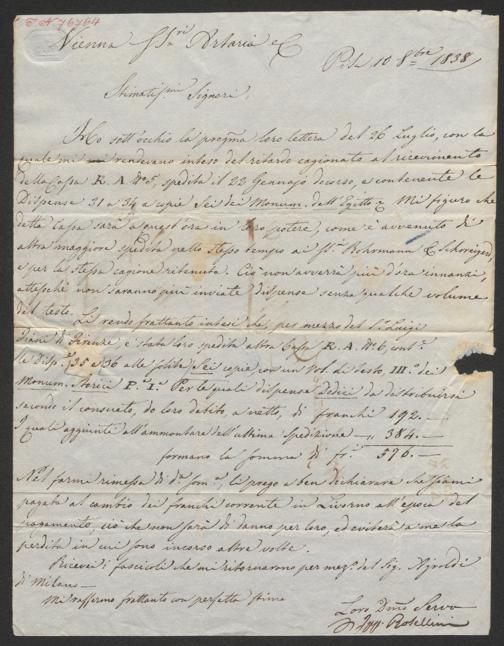 E A 76764
Vienna SS.ri Artaria e C
Pisa 10 8bre 1838
Stimatis.mi Signori,
Ho sott'occhio la pregma loro lettera del 26 Luglio, con la
quale mi rendevano inteso del ritardo cagionato al ricevimento
della Cassa R. A. No 5, spedita il 22 Gennajo decorso, e contenente le
Dispense 31 a 34 a copie Sei dei Monum. dell'Egitto &. Mi figuro che
detta Cassa sarà a quest'ora in loro potere, come è avvenuto di
altra maggiore spedita nello stesso tempo ai SS.i Rohrmann e Schweigerd,
e per la stessa cagione ritenuta. Ciò non avverrà più d'ora innanzi,
atteso che non saranno più inviate dispense senza qualche volume
del testo. Li rendo frattanto intesi che, per mezzo del Sr Luigi
di Firenze è stata loro spedita altra Cassa R. A. No 6, cont.e
le Disp.e 35 e 36 alle solite Sei copie, con un Vol. di testo, III.o dei
Monum. Storici P.e 1.a Per le quali dispense Dodici da distribuirsi
secondo il consueto, do loro debito, a netto, di franchi 192. —
I quali aggiunti all'ammontare dell'ultima spedizione — „ 384. —
formano la somma di fr. 576. —
Nel farme rimessa di da som.a, le prego a ben dichiarare che siami
pagata al cambio dei franchi corrente in Livorno all'epoca del
pagamento, ciò che non sarà di danno per loro, ed eviterà a me la
perdita in cui sono incorso altre volte.
Ricevei i fascicoli che mi ritornarono per mezo del Sig.
di Milano —
Mi raffermo frattanto con perfetta stima
Loro Dmo Servo
Ippo Rosellini